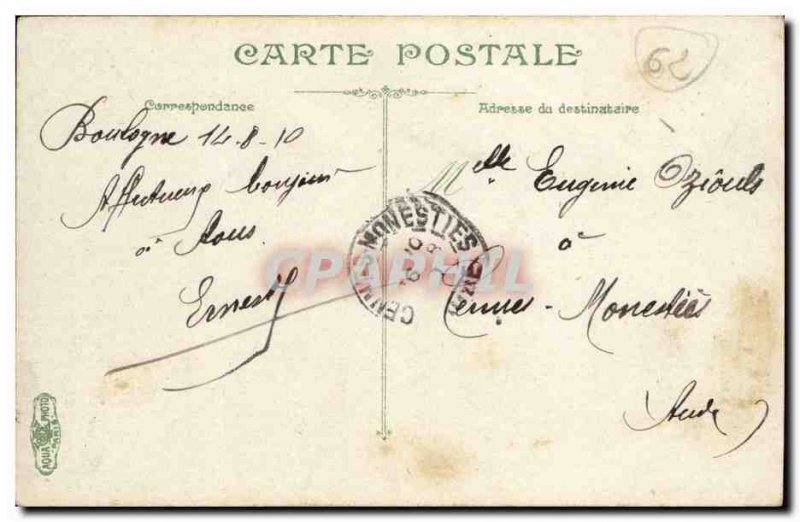 CARTE POSTALE
62
Correspondance
Boulogne 14-8-10
Affectueux bonjour
à tous
Ernest
Adresse du destinataire
Melle Eugenie
à
Cennes-Monestiès
Aude
CENNES-MONESTIES
CPAPHIL
AQUA PHOTO
PARIS